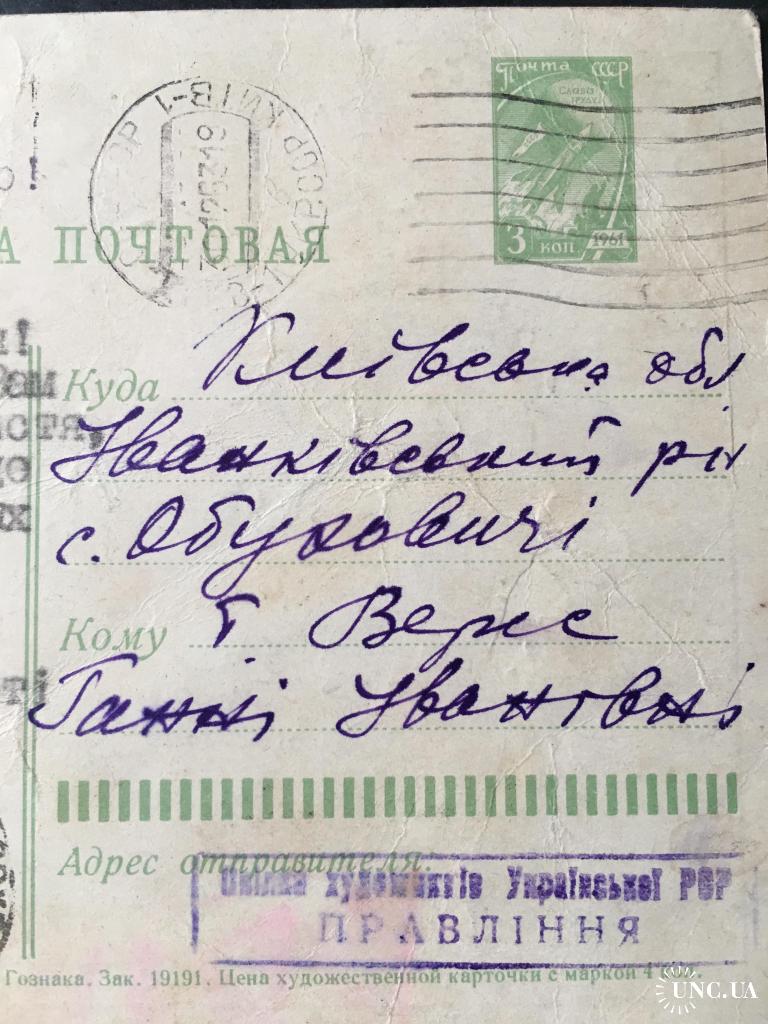 Почта СССР
СЛАВА
ТРУДУ
3 коп 1961
КИЇВ-1
А ПОЧТОВАЯ
Куда Київська обл
Іванківський р-н
с. Обуховичі
Кому т Верес
Ганні Іванівні
Адрес отправителя:
Спілка художників Української РСР
ПРАВЛІННЯ
Гознака. Зак. 19191. Цена художественной карточки с маркой 4
UNC.UA